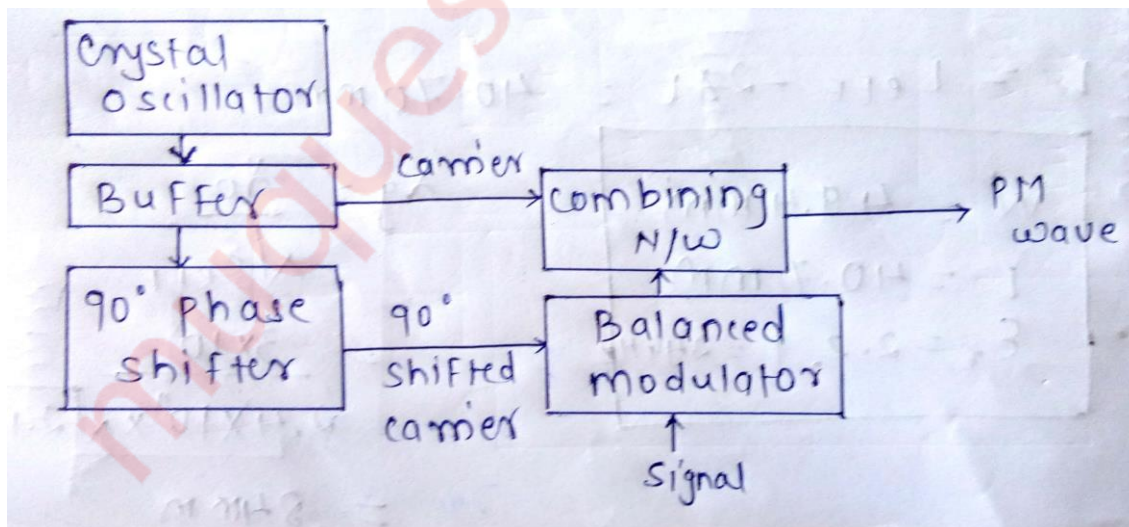 Crystal
oscillator
Buffer
carrier
combining
N/W
PM
wave
90° Phase
shifter
90°
shifted
carrier
Balanced
modulator
Signal
muques